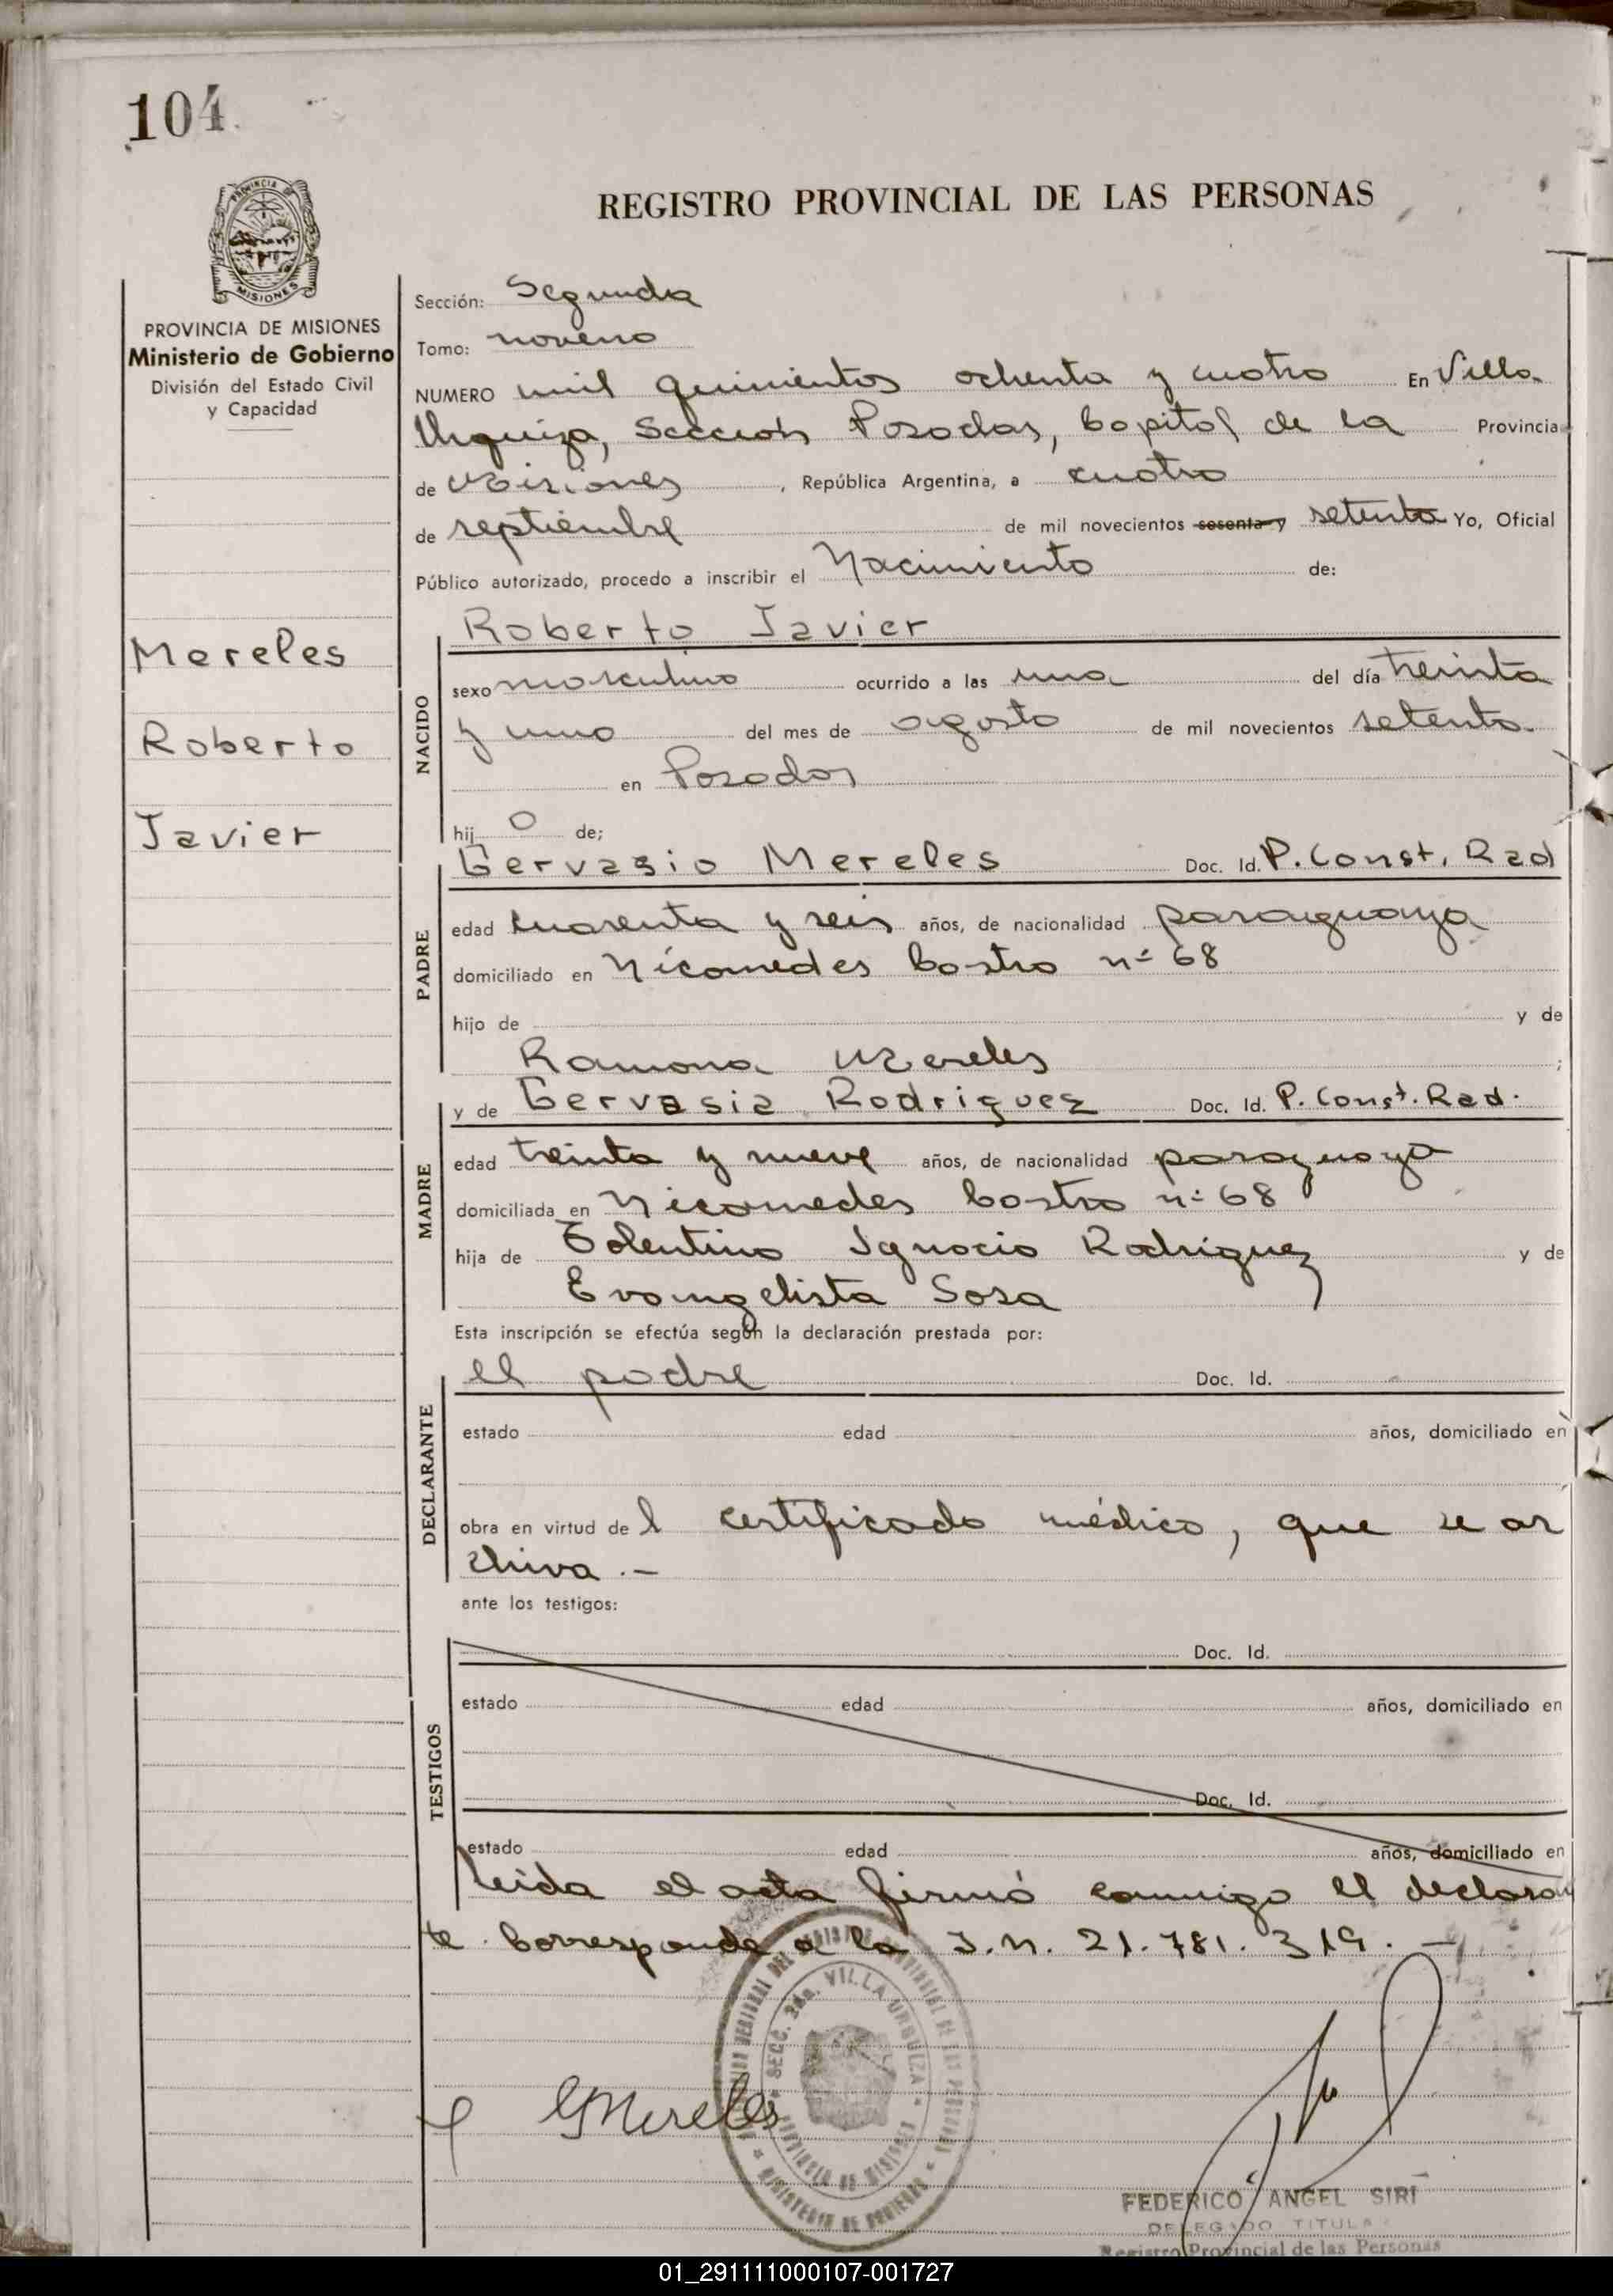 104
REGISTRO PROVINCIAL DE LAS PERSONAS
PROVINCIA DE MISIONES
PROVINCIA DE MISIONES
Ministerio de Gobierno
División del Estado Civil
y Capacidad
Mereles
Roberto
Javier
Sección: Segunda
Tomo: noveno
NUMERO mil quinientos ochenta y cuatro En Villa
Urquiza, Sección Posadas, Capital de la Provincia
de Misiones , República Argentina, a cuatro
de septiembre de mil novecientos sesenta y setenta Yo, Oficial
Público autorizado, procedo a inscribir el Nacimiento de:
NACIDO
Roberto Javier
sexo masculino ocurrido a las una del día treinta
y uno del mes de agosto de mil novecientos setenta
en Posadas
hij o de;
PADRE
Gervasio Mereles Doc. Id. P. Const. Rad
edad cuarenta y seis años, de nacionalidad paraguaya
domiciliado en Nicomedes Castro nº 68
hijo de y de
Ramona Mereles ;
MADRE
y de Gervasia Rodriguez Doc. Id. P. Const. Rad.
edad treinta y nueve años, de nacionalidad paraguaya
domiciliada en Nicomedes Castro nº 68
hija de Tolentino Ignacio Rodriguez y de
Evangelista Sosa
Esta inscripción se efectúa según la declaración prestada por:
DECLARANTE
el padre Doc. Id.
estado edad años, domiciliado en
obra en virtud de l certificado médico, que se ar
chiva .-
ante los testigos:
TESTIGOS
Doc. Id.
estado edad años, domiciliado en
Doc. Id.
estado edad años, domiciliado en
Leida el acta firmó conmigo el declaran
te. Corresponde a la I.N. 21.781.319. -
SECC. 2da. VILLA URQUIZA
PROVINCIA DE MISIONES
MINISTERIO DE GOBIERNO
GMereles
FEDERICO ANGEL SIRI
DELEGADO TITULAR
Registro Provincial de las Personas
01_291111000107-001727